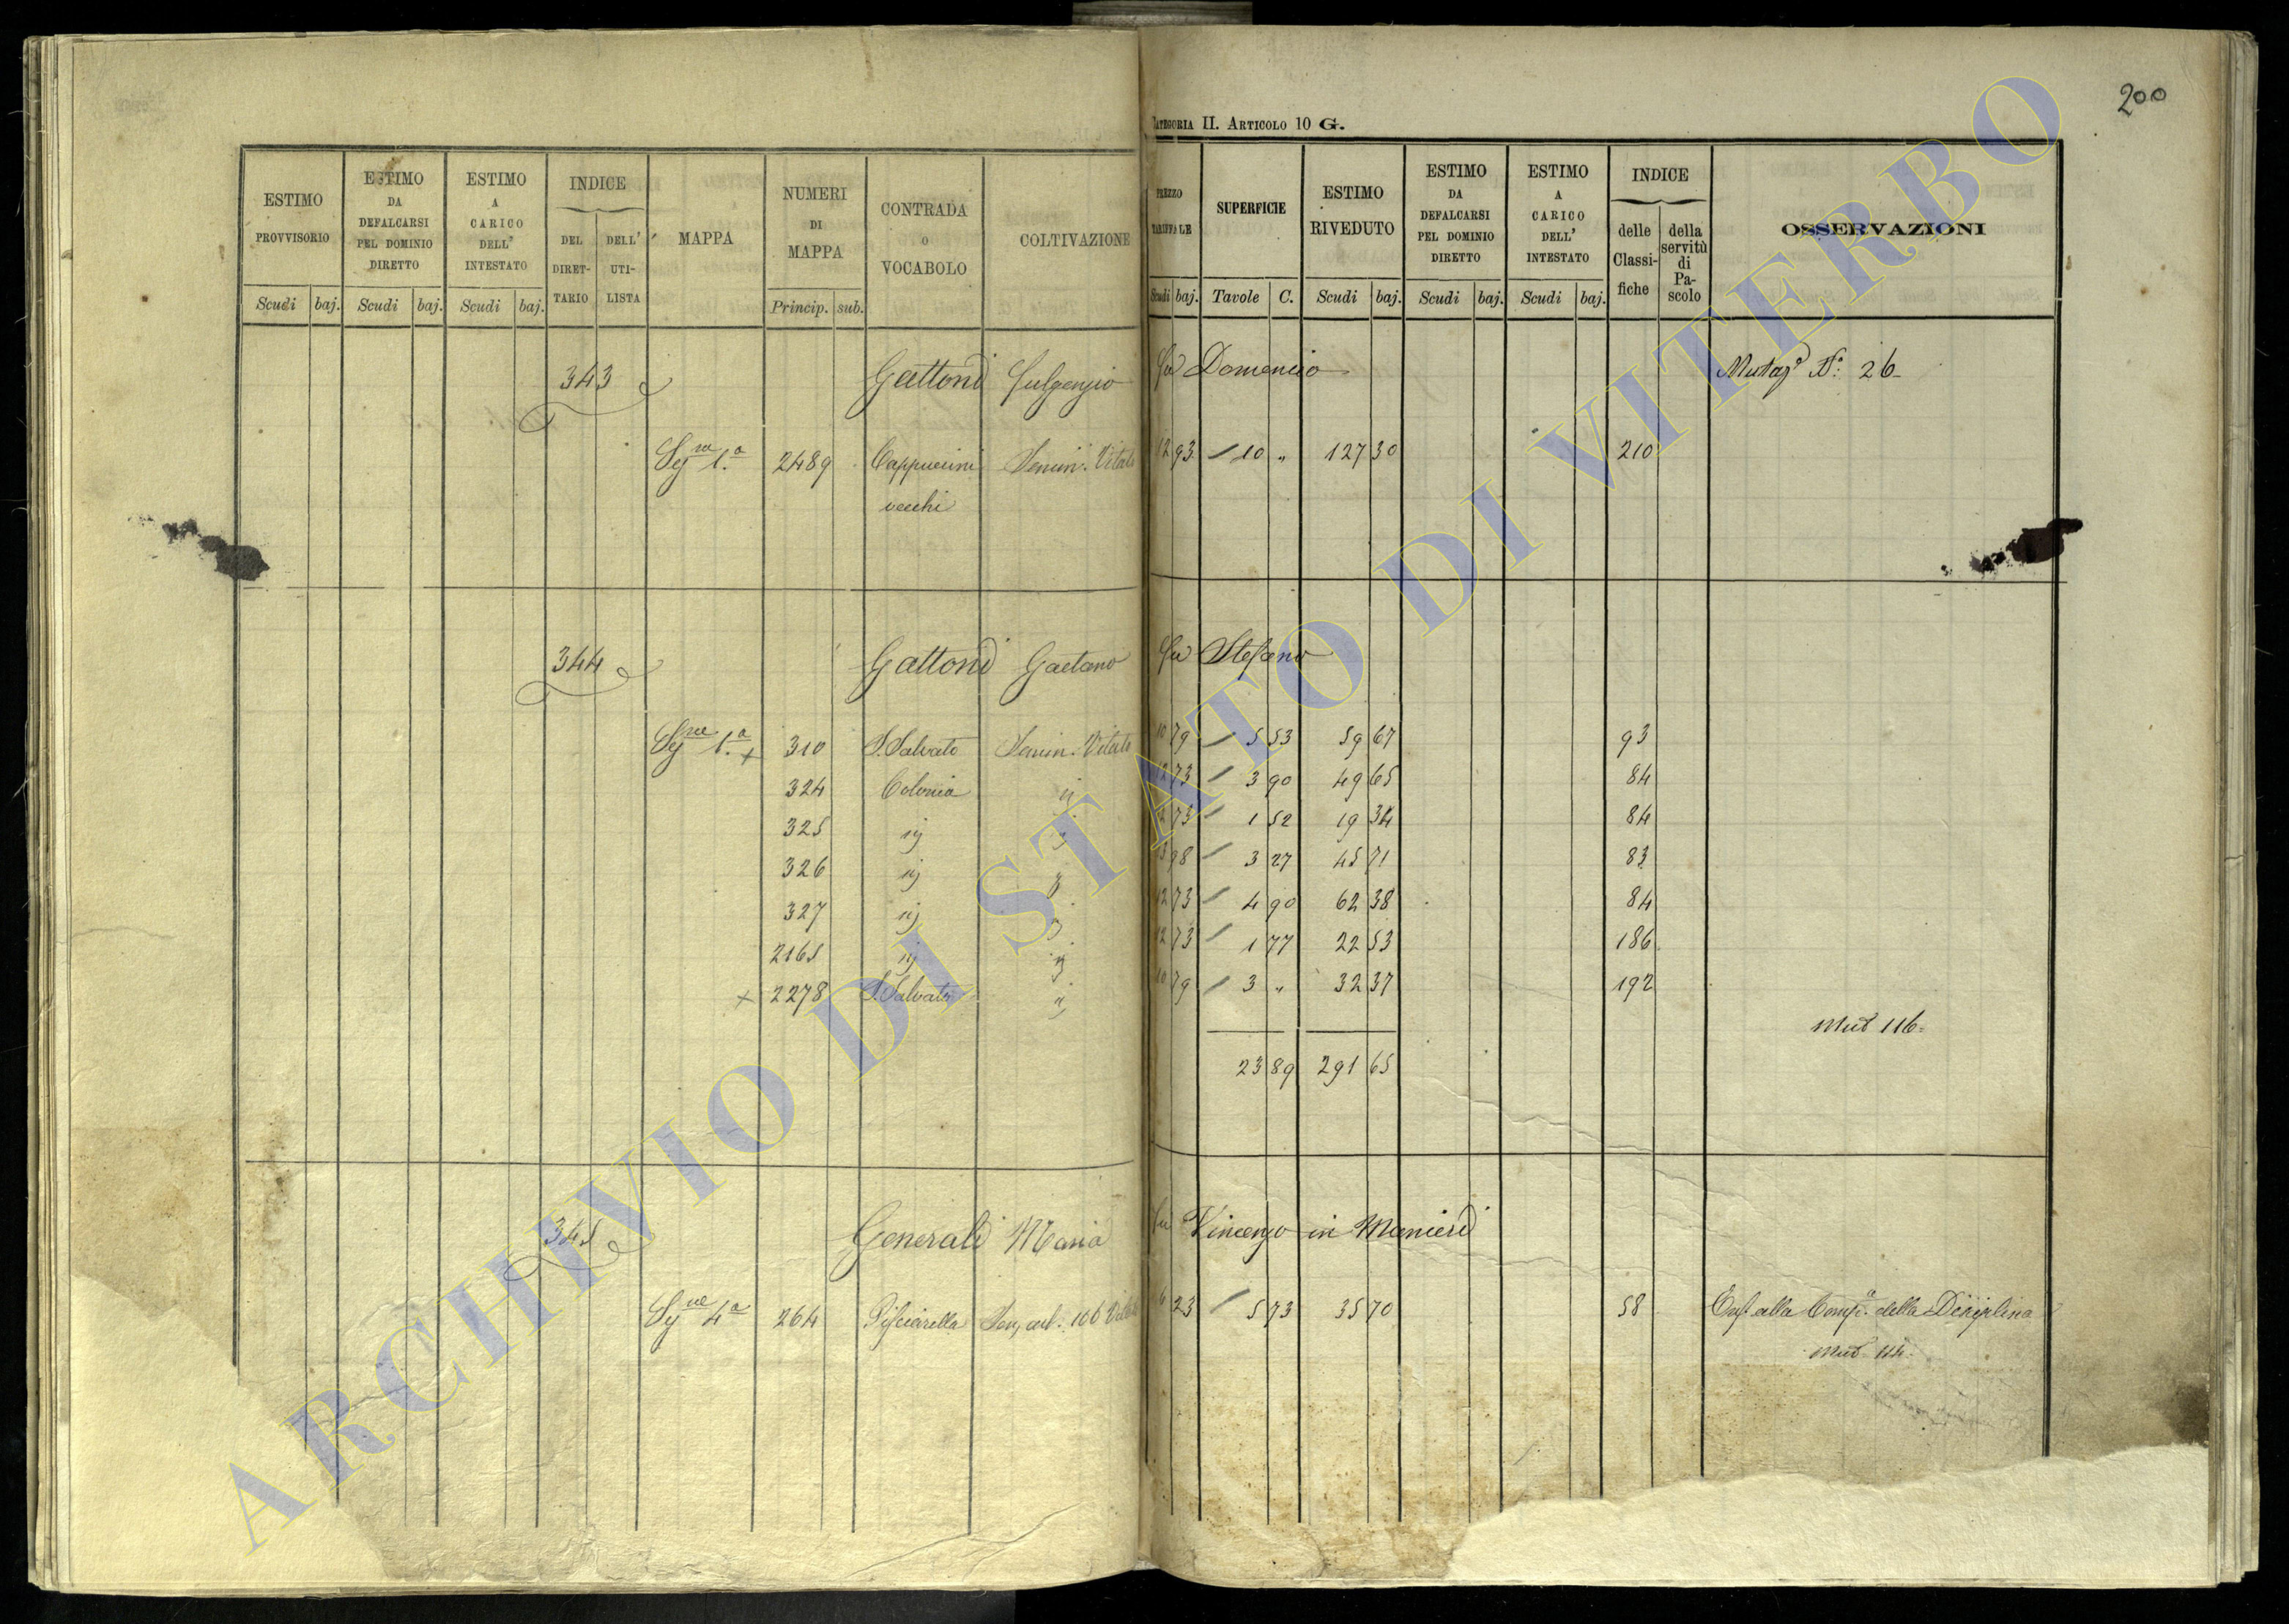 200
CATEGORIA II. ARTICOLO 10 G.
ESTIMO PROVVISORIO
Scudi baj.
ESTIMO DA DEFALCARSI PEL DOMINIO DIRETTO
Scudi baj.
ESTIMO A CARICO DELL' INTESTATO
Scudi baj.
INDICE
DEL DIRET-TARIO
DELL' UTI-LISTA
MAPPA
NUMERI DI MAPPA
Princip. sub.
CONTRADA O VOCABOLO
COLTIVAZIONE
PREZZO TARIFFALE
Scudi baj.
SUPERFICIE
Tavole C.
ESTIMO RIVEDUTO
Scudi baj.
ESTIMO DA DEFALCARSI PEL DOMINIO DIRETTO
Scudi baj.
ESTIMO A CARICO DELL' INTESTATO
Scudi baj.
INDICE
delle Classi-fiche
della servitù di Pa-scolo
OSSERVAZIONI
343 Gattoni Fulgenzio fu Domenico Mutaz.e N.o 26
Sez.ne 1.a 2489 Cappuccini Semin. Vitato 12 93 10 " 127 30 210
vecchi
344 Gattoni Gaetano fu Stefano
Sez.ne 1.a x 310 S. Salvato Semin. Vitato 10 79 5 53 59 67 93
324 Colonia ij 12 73 3 90 49 65 84
325 ij ij 12 73 1 52 19 34 84
326 ij ij 13 98 3 27 45 71 83
327 ij ij 12 73 4 90 62 38 84
2165 ij ij 12 73 1 77 22 53 186
x 2278 S. Salvato ij 10 79 3 " 32 37 192
Mut 116
23 89 291 65
345 Generali Maria fu Vincenzo in Menieri
Sez.ne 4.a 264 Pisciarella 6 23 5 73 35 70 58 Enf. alla Comp.a della Disciplina
Mut 114
ARCHIVIO DI STATO DI VITERBO